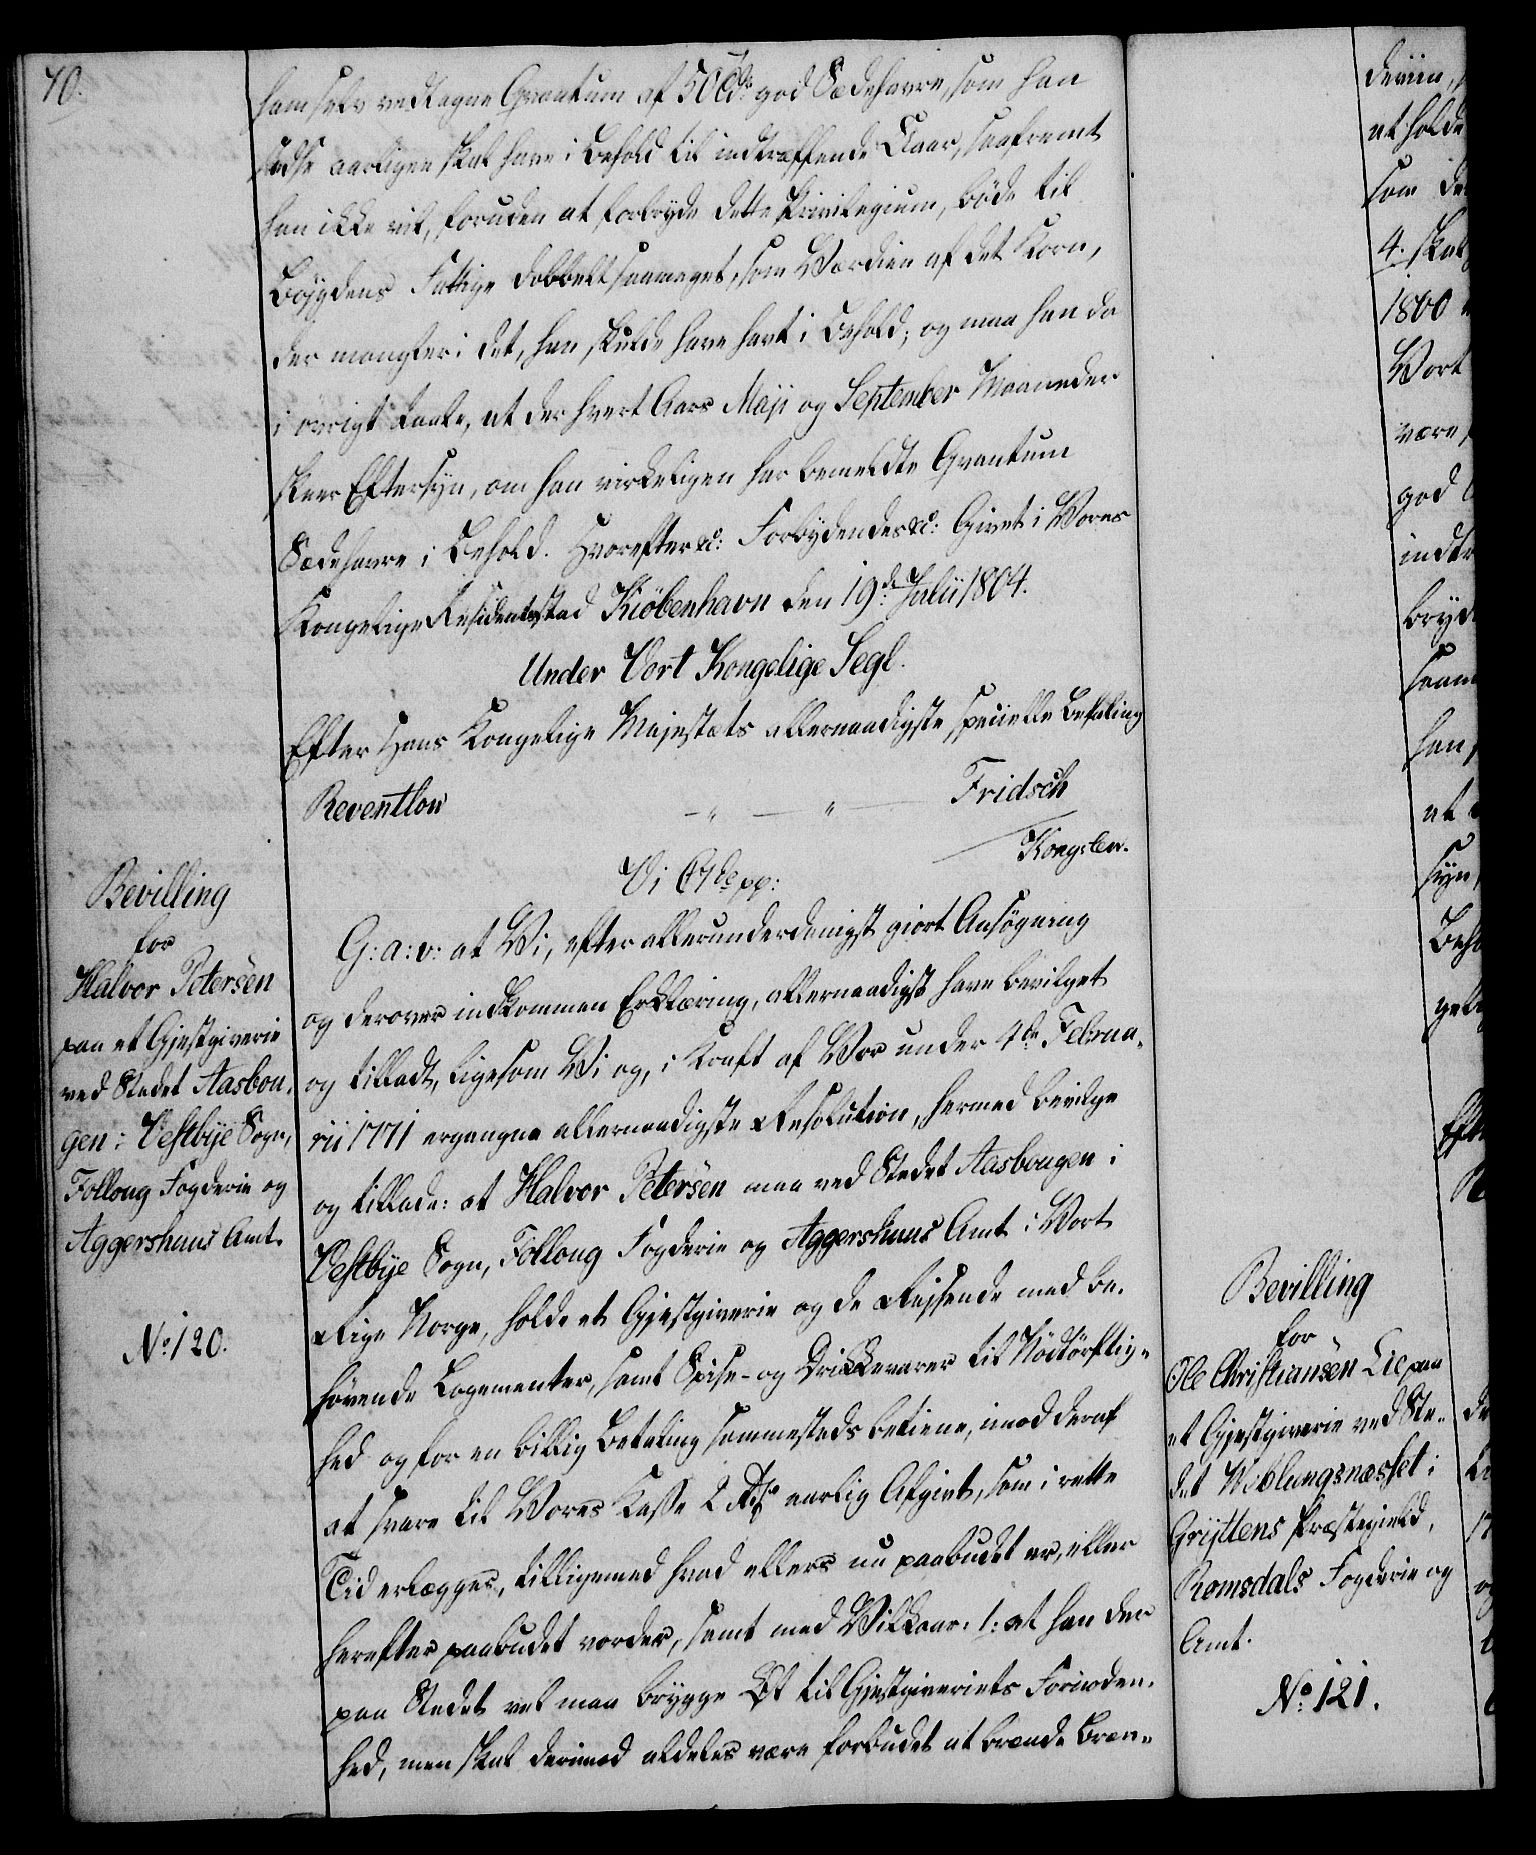 70.
ham selv vedtagne Qvantum af 50 Tdr god Sædehavre, som han
stedse aarligen skal have i Behold til indtræffende Uaar, saafremt
han ikke vil, foruden at forbryde dette Privilegium, bøde til
Bøygdens Fattige dobbelt saameget, som Værdien af det Korn,
der mangler i det, han skulde have havt i Behold; og maa han da
i øvrigt taale, at der hvert Aars Maji og September Maaneder
skeer Eftersyn, om han virkeligen har bemeldte Qvantum
Sædehavre i Behold. Hvorefter &c: Forbydendes &c: Givet i Vores
Kongelige Residentsstad Kiöbenhavn den 19de Julii 1804.
Under Vort Kongelige Segl.
Efter Hans Kongelige Majestæts allernaadigste specielle Befaling
Reventlow — „ — „ — Fridsch
Kongslev.
Bevilling
for
Halvor Petersen
paa et Gjestgiverie
ved Stedet Aasbou-
gen i Vestbye Sogn,
Folloug Fogderie og
Aggershuus Amt.
No 120.
Vi C 7de pp:
G: a: v: at Vi, efter allerunderdanigst giort Ansøgning
og derover indkommen Erklæring, allernaadigst have bevilget
og tilladt, ligesom Vi og, i Kraft af Vor under 4de Februa-
rii 1771 ergangne allernaadigste Resolution, hermed bevilge
og tillade: at Halvor Petersen maa ved Stedet Aasbougen i
Vestbye Sogn, Follong Fogderie og Aggershuus Amt i Vort
Rige Norge, holde et Gjestgiverie og de Reisende med be-
høvende Logementer, samt Spise- og Drikkevarer til Nödtörftig-
hed og for en billig Betaling sammesteds betiene, imod deraf
at svare til Vores Kasse 2 Rdr aarlig Afgivt, som i rette
Tid erlægges, tilligemed hvad ellers nu paabudet er, eller
herefter paabudet vorder, samt med Vilkaar: 1: at han der
paa Stedet vel maa brygge Øl til Gjestgiveriets Fornøden-
hed, men skal derimod aldeles være forbudet at brænde Bræn-
Bevilling
for
Ole Christiansen Lie paa
et Gjestgiverie ved Ste-
det Neblungsnæsset i
Gryttens Præstegield,
Romsdals Fogderie og
Amt.
No 121.
deviin,
at holde
som de
4. skal
1800
Vort
være
god
indtr
bryd
saam
han
at
syn
Beho
gelig
Efte